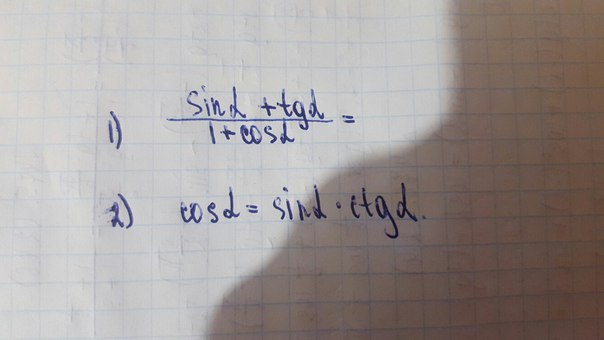 1) (sinα + tgα)/(1 + cosα) =
2) cosα = sinα · ctgα.